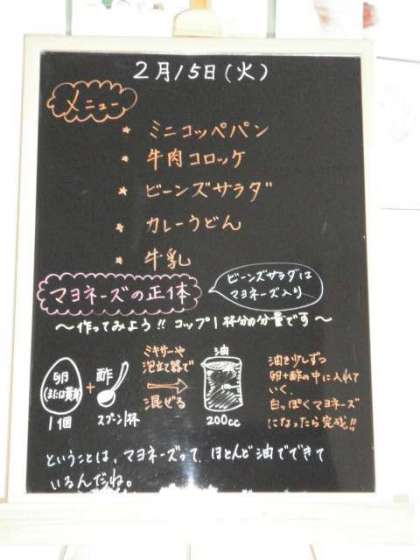 2月15日(火)
メニュー
★ ミニコッペパン
★ 牛肉コロッケ
★ ビーンズサラダ
★ カレーうどん
★ 牛乳
マヨネーズの正体
ビーンズサラダは
マヨネーズ入り
〜作ってみよう!! コップ1杯分の分量です〜
卵
1個
+
酢
スプーン1杯
ミキサーや
泡立て器で
混ぜる
油
200cc
油を少しずつ
卵+酢の中に入れて
いく。
白っぽくマヨネーズ
になったら完成!!
ということは、マヨネーズって、ほとんど油でできて
いるんだね。